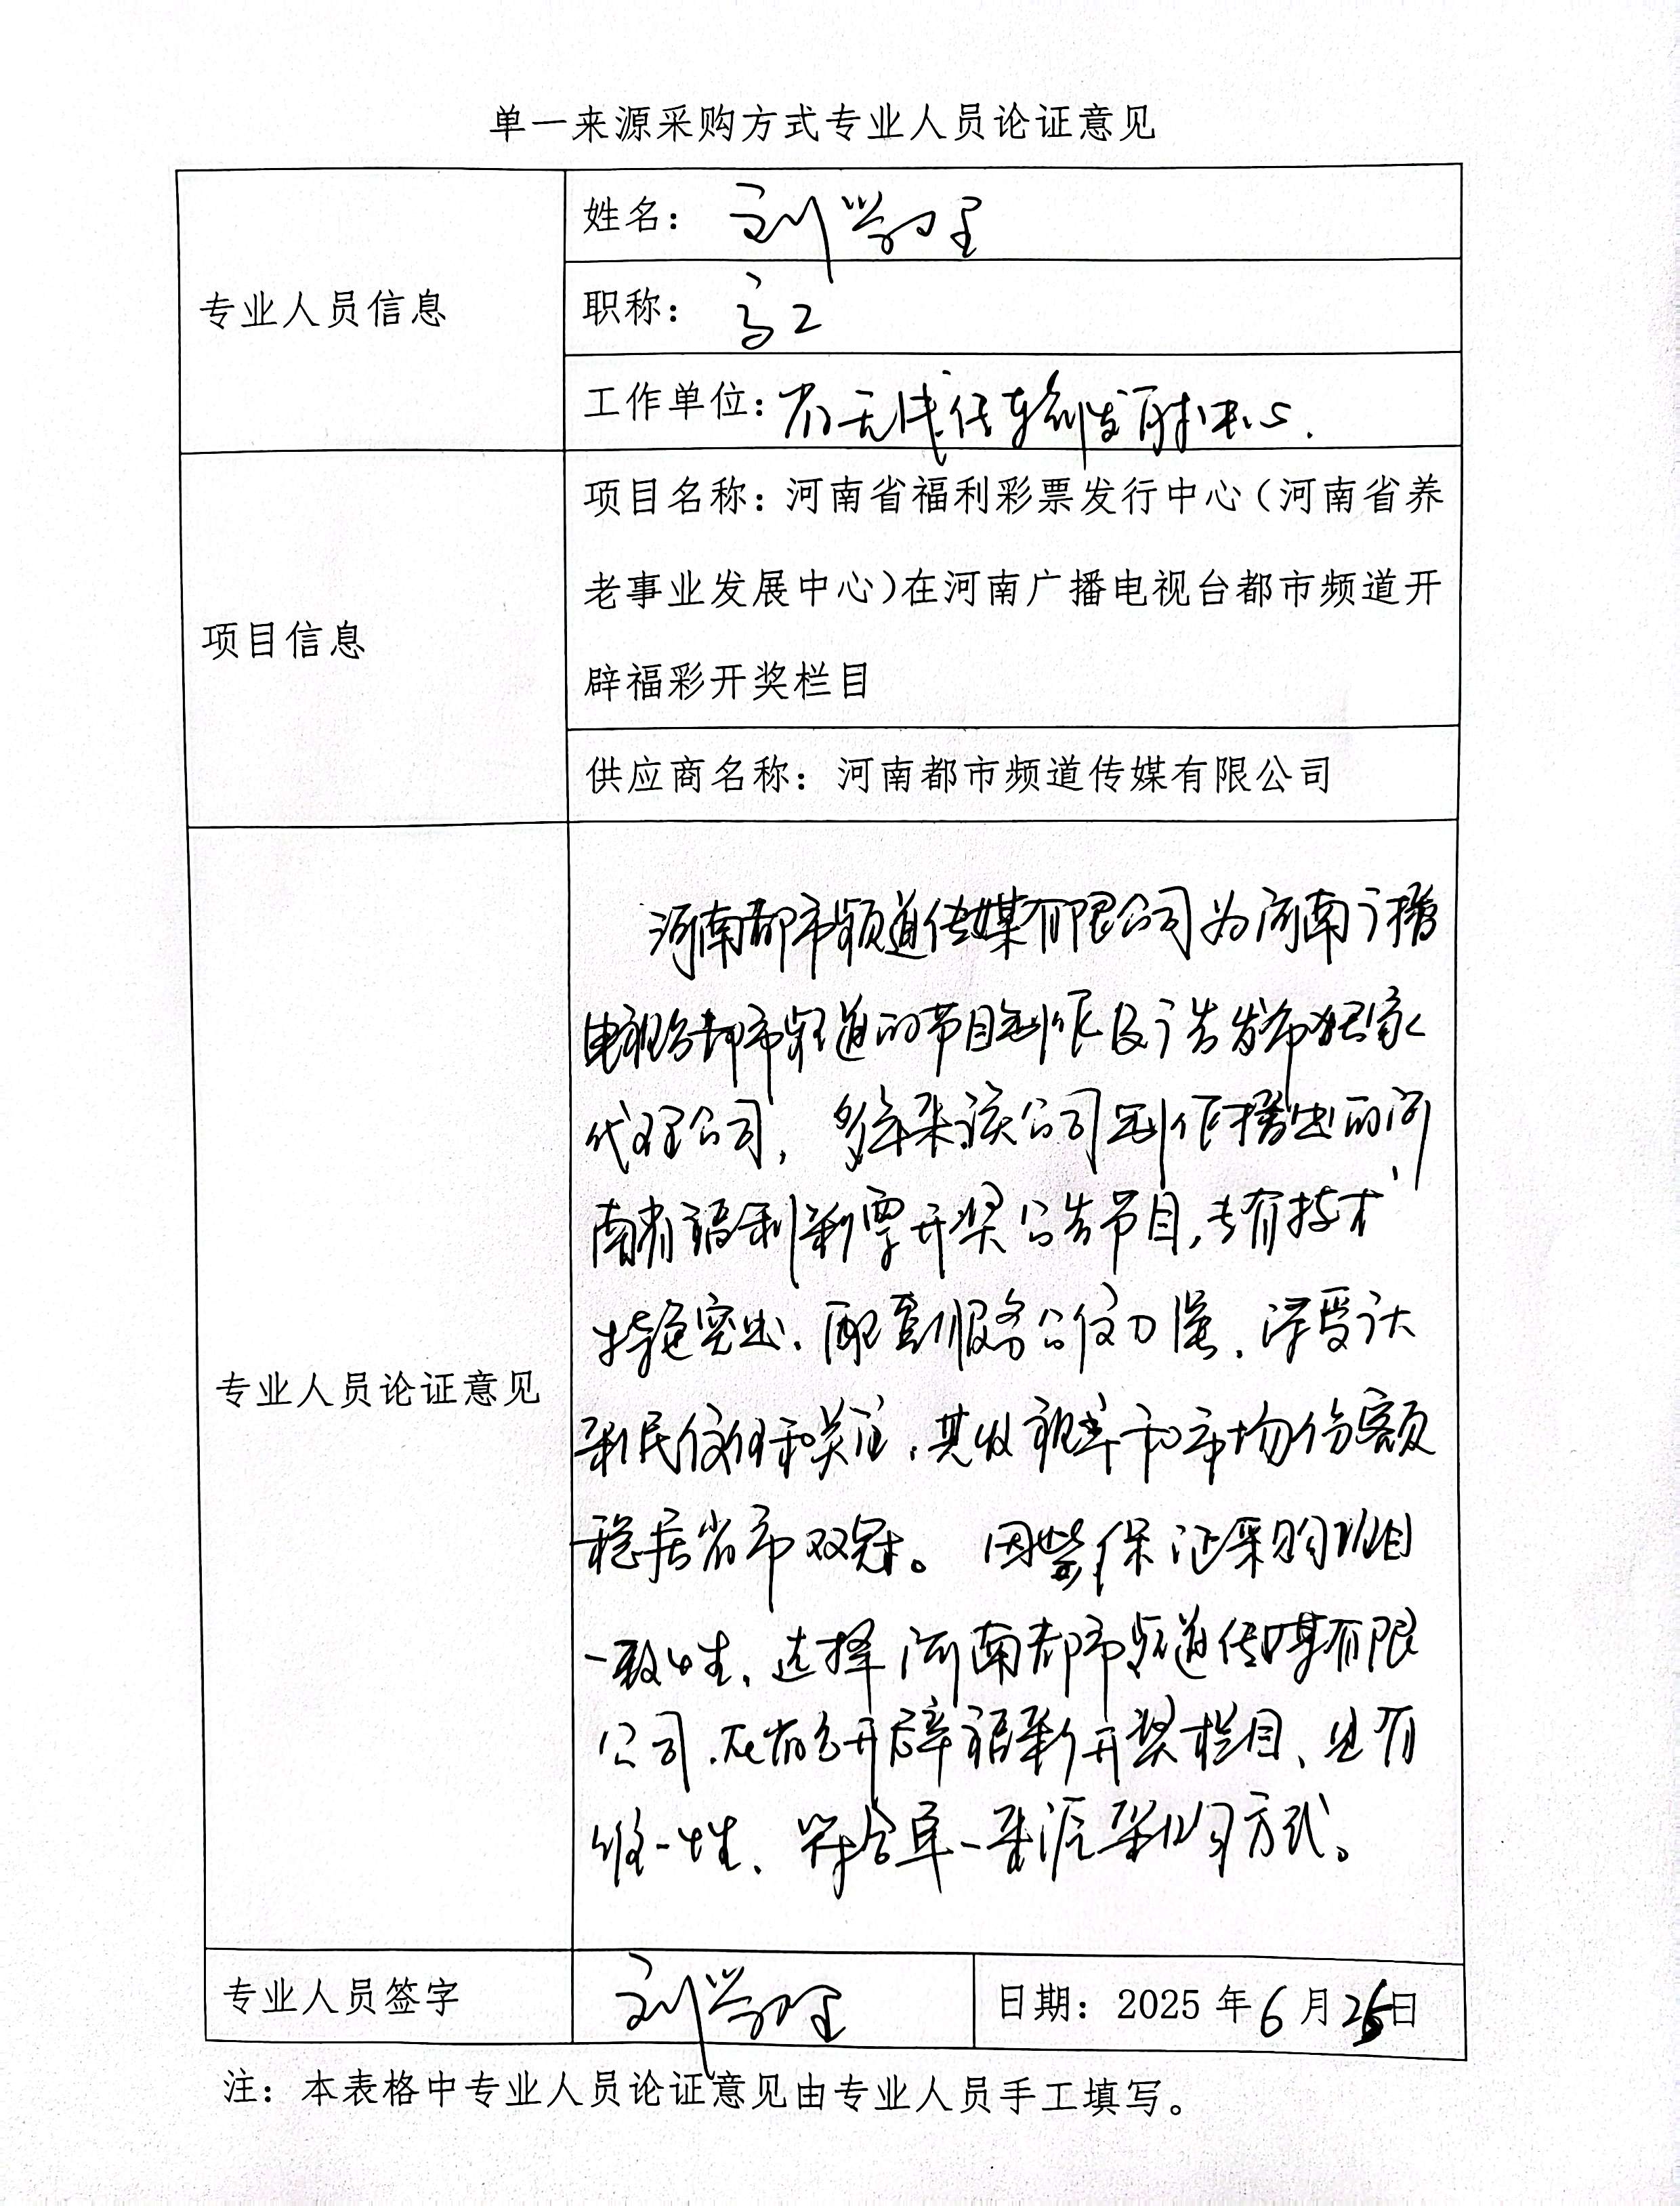 单一来源采购方式专业人员论证意见
专业人员信息
姓名：刘学理
职称：高工
工作单位：省无线传输发射中心.
项目信息
项目名称：河南省福利彩票发行中心（河南省养
老事业发展中心）在河南广播电视台都市频道开
辟福彩开奖栏目
供应商名称：河南都市频道传媒有限公司
专业人员论证意见
河南都市频道传媒有限公司为河南广播
电视台都市频道的节目制作及广告发布独家
代理公司，多年来该公司制作播出的河
南省福利彩票开奖公告节目，专有技术
特色突出、配套服务公信力强、深受广大
彩民信任和关注，其收视率和市场份额
稳居省市双冠。因此保证采购项目
一致性、选择河南都市频道传媒有限
公司，在省台开辟福彩开奖栏目、具有
唯一性、符合单一来源采购方式。
专业人员签字
刘学理
日期：2025年6月 日
注：本表格中专业人员论证意见由专业人员手工填写。